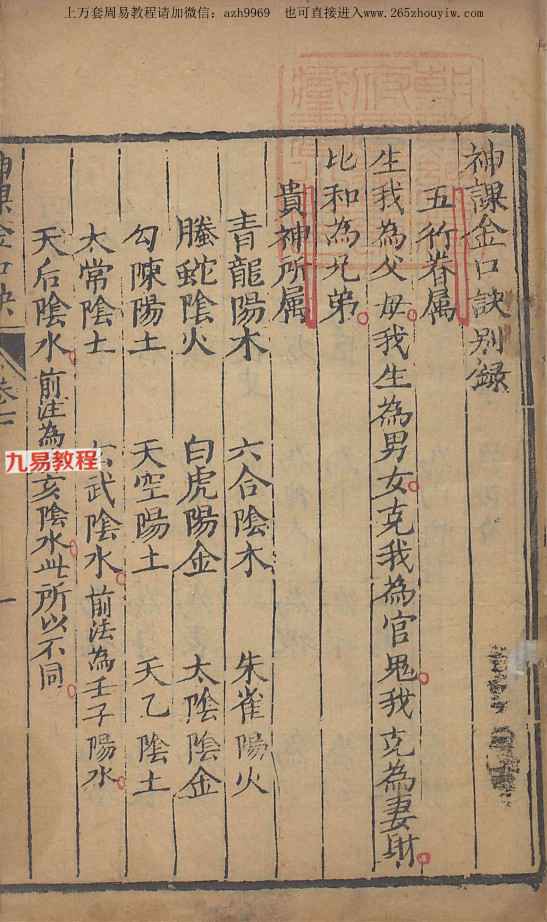 上万套周易教程请加微信：azh9969　也可直接进入www.265zhouyiw.com
神課金口訣别録
五行眷属
生我為父母我生為男女克我為官鬼我克為妻財
比和為兄弟
貴神所属
青龍陽木　六合陰木　朱雀陽火
螣蛇陰火　白虎陽金　太陰陰金
勾陳陽土　天空陽土　天乙陰土
太常陰土　武陰水前法為壬子陽水
天后陰水前注為亥陰水此所以不同
神課金口訣　卷七　一
九易教程